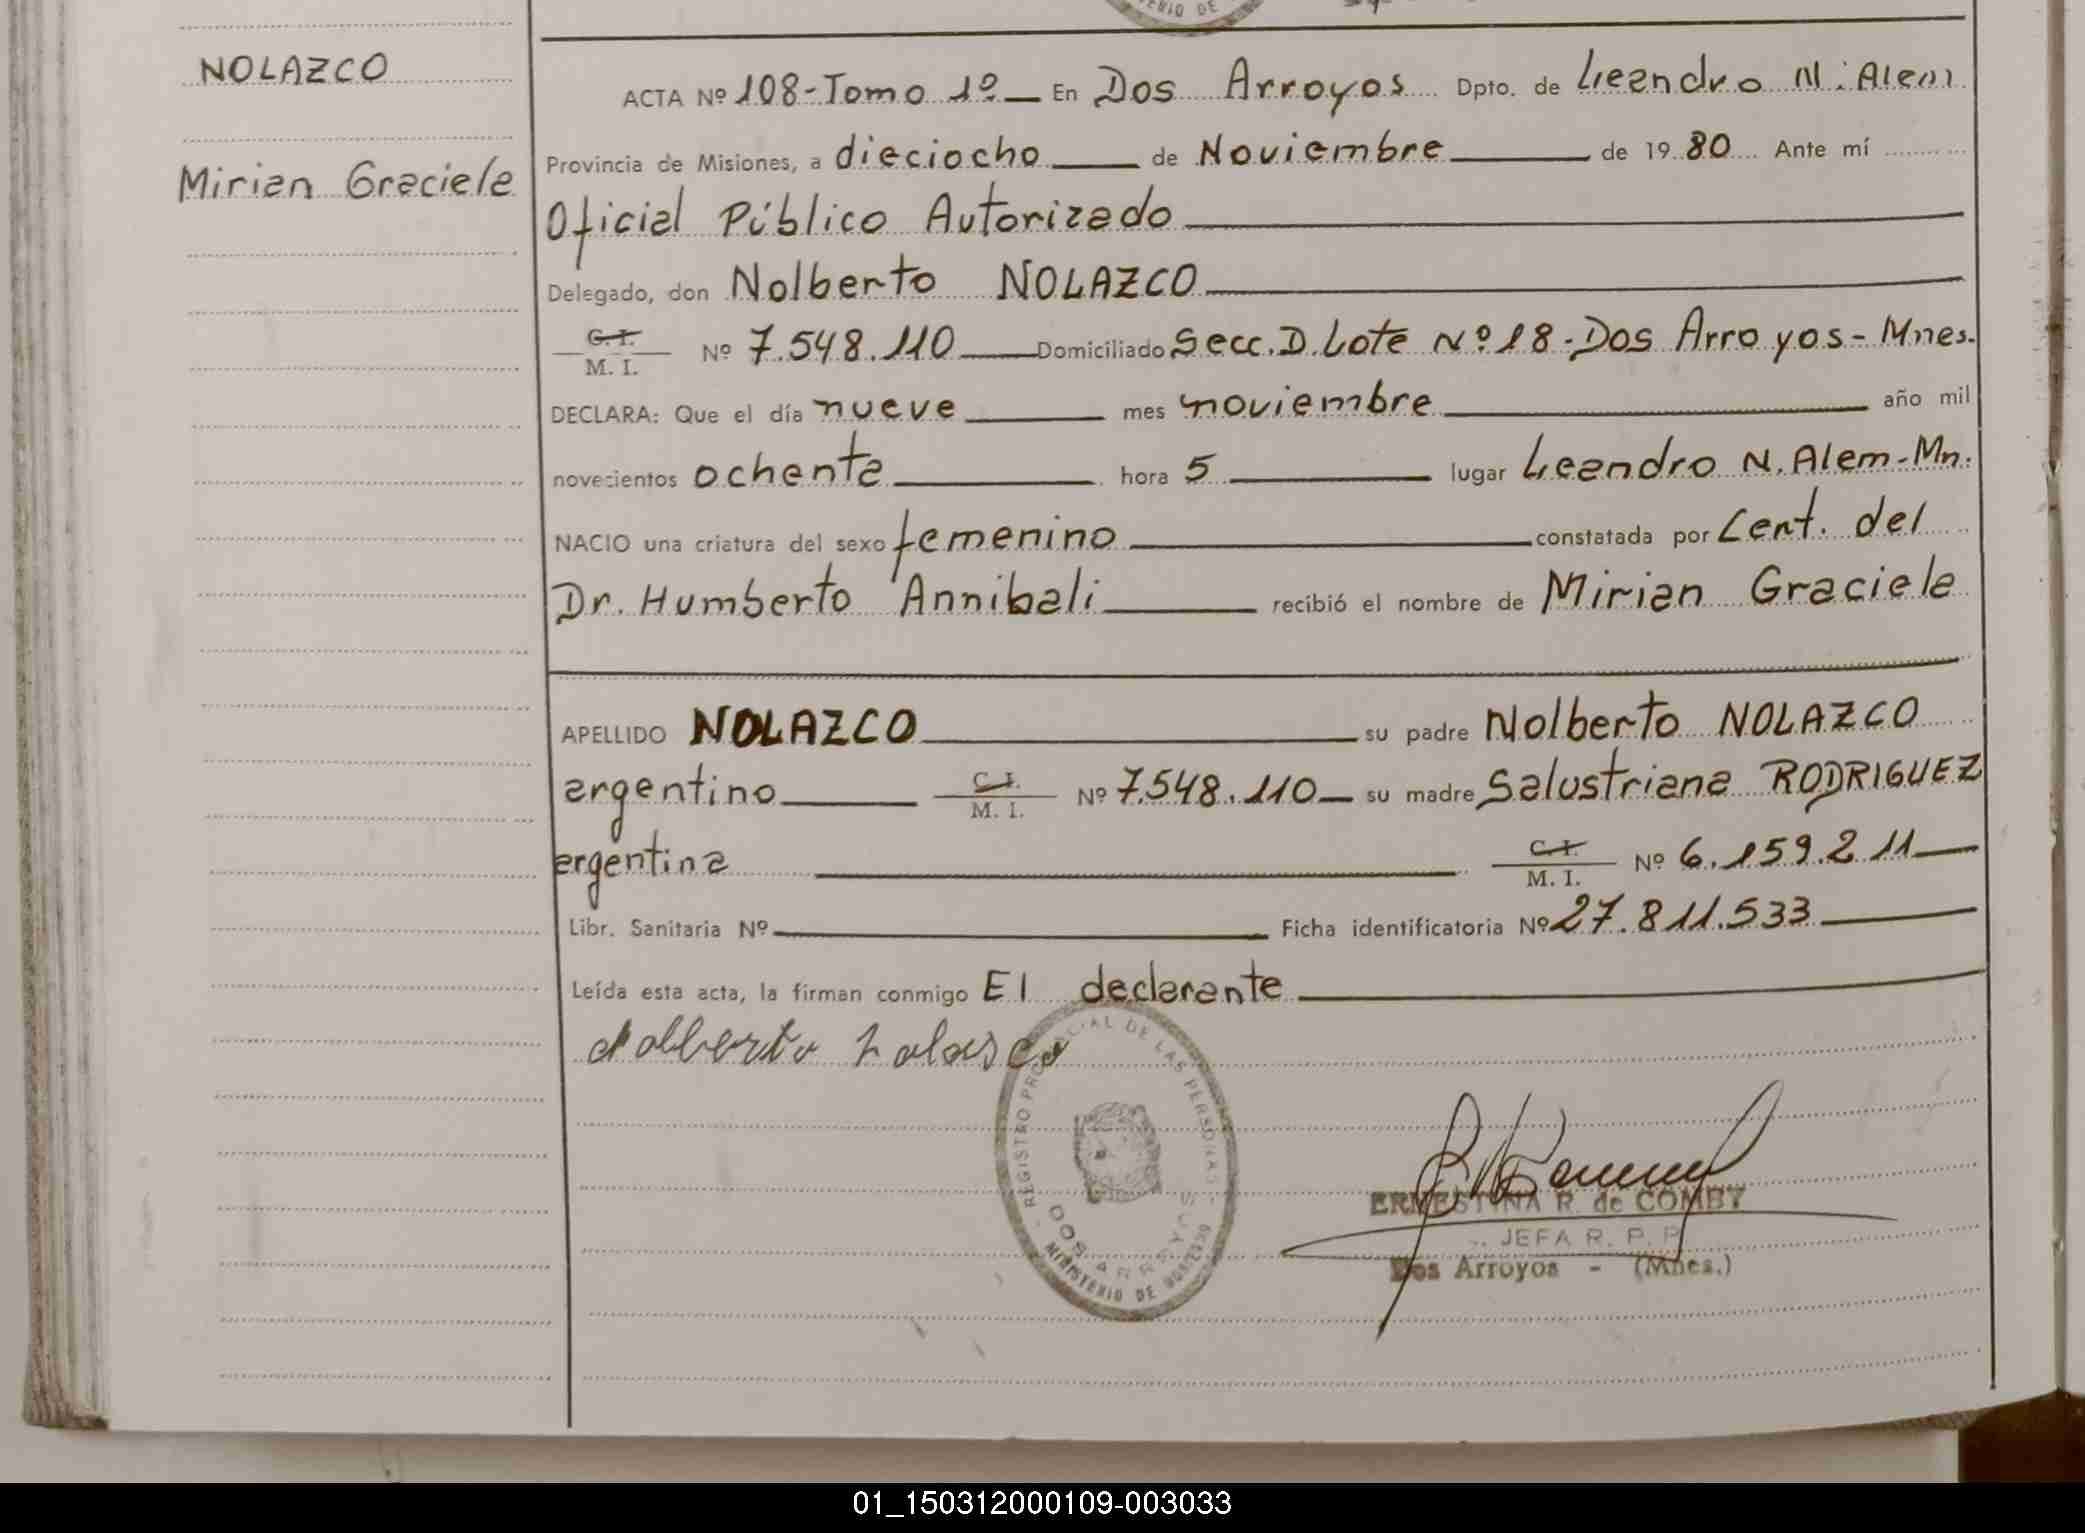 ERIO DE
NOLAZCO
Mirian Graciela
ACTA Nº 108-Tomo 1º En Dos Arroyos Dpto. de Leandro N. Alem
Provincia de Misiones, a dieciocho de Noviembre de 1980 Ante mí
Oficial Público Autorizado
Delegado, don Nolberto NOLAZCO
C. I.
M. I. Nº 7.548.110 Domiciliado Secc. D. Lote Nº 18-Dos Arroyos-Mnes.
DECLARA: Que el día nueve mes noviembre año mil
novecientos ochenta hora 5 lugar Leandro N. Alem-Mn.
NACIO una criatura del sexo femenino constatada por Cert. del
Dr. Humberto Annibali recibió el nombre de Mirian Graciela
APELLIDO NOLAZCO su padre Nolberto NOLAZCO
argentino C. I. M. I. Nº 7.548.110 su madre Salustriana RODRIGUEZ
argentina C. I. M. I. Nº 6.159.211
Libr. Sanitaria Nº Ficha identificatoria Nº 27.811.533
Leída esta acta, la firman conmigo El declarante
REGISTRO PROVINCIAL DE LAS PERSONAS
DOS ARROYOS
MINISTERIO DE GOBIERNO
ERNESTINA R. de COMBY
JEFA R. P. P.
Dos Arroyos - (Mnes.)
01_150312000109-003033